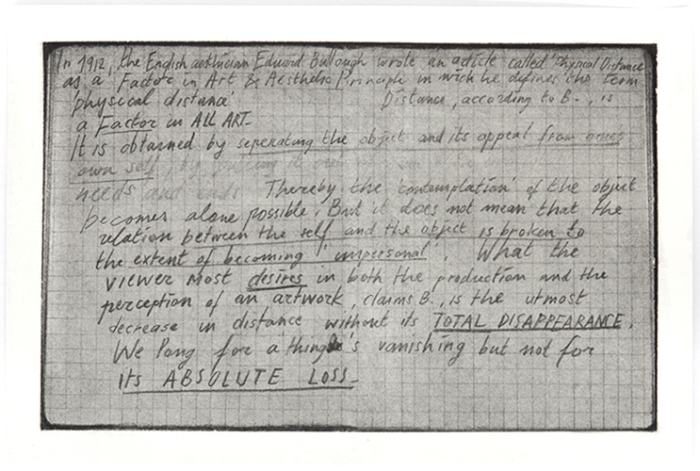 In 1912, the English aesthetician Edward Bullough wrote an article called 'Physical Distance
as a Factor in Art & Aesthetic Principle in wich he defines the term
'physical distance' Distance, according to B., is
a Factor in ALL ART.
It is obtained by seperating the object and its appeal from one's
own self, by putting it
needs and ends. Thereby the 'contemplation' of the object
becomes alone possible. But it does not mean that the
relation between the self and the object is broken to
the extent of becoming 'impersonal'. What the
viewer most desires in both the production and the
perception of an artwork, claims B., is the utmost
decrease in distance without its TOTAL DISAPPEARANCE.
We long for a thing's vanishing but not for
its ABSOLUTE LOSS.